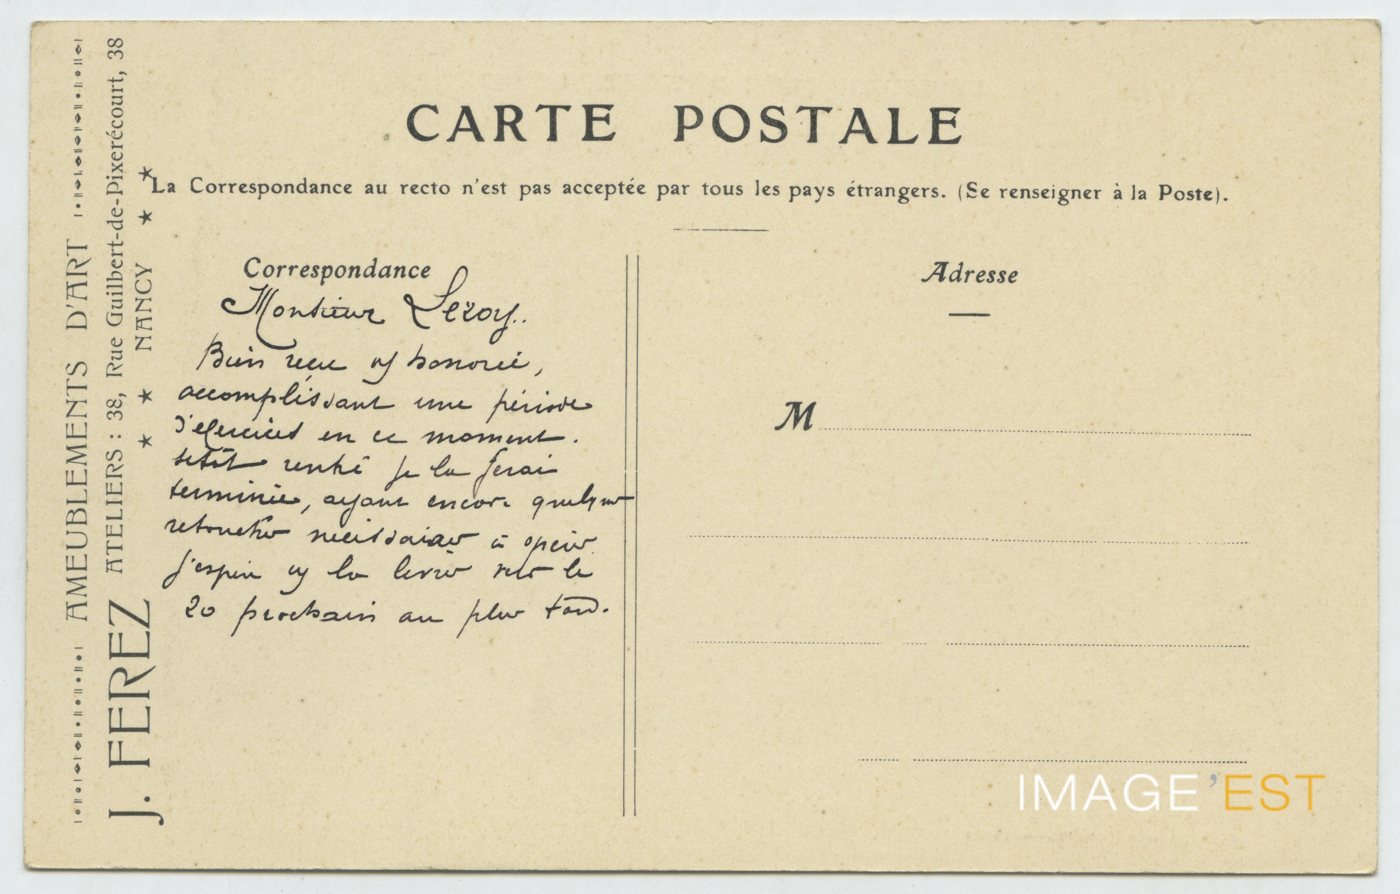 AMEUBLEMENTS D'ART
J. FEREZ ATELIERS : 38, Rue Guilbert-de-Pixerécourt, 38
★ ★ NANCY ★ ★
CARTE POSTALE
La Correspondance au recto n'est pas acceptée par tous les pays étrangers. (Se renseigner à la Poste).
Correspondance
Monsieur Leroy.
Bien reçu honorée,
accomplissant une période
d'exercices en ce moment.
sitôt rentré je la ferai
terminée, ayant encore quelques
retouches nécessaires à opérer
j'espère la livrer le
20 prochain au plus tard.
Adresse
M
IMAGE'EST